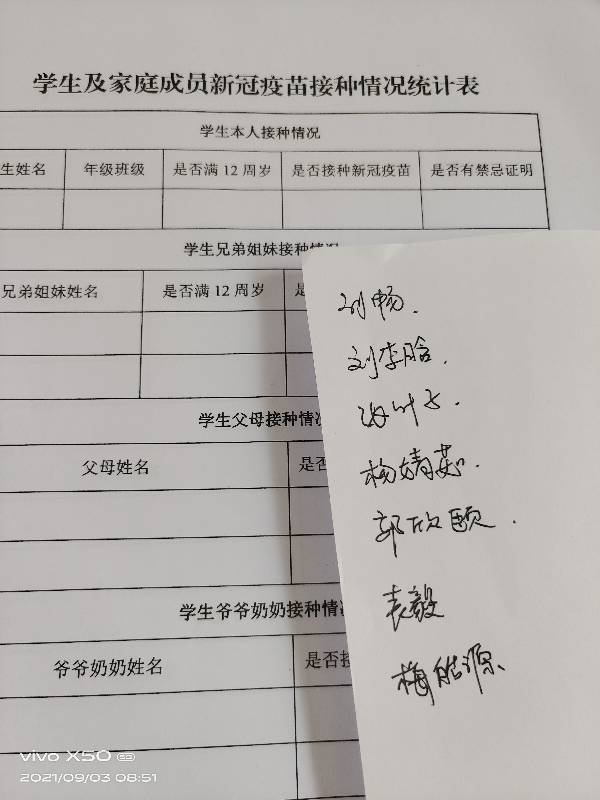 学生及家庭成员新冠疫苗接种情况统计表
学生本人接种情况
生姓名 年级班级 是否满12周岁 是否接种新冠疫苗 是否有禁忌证明
学生兄弟姐妹接种情况
兄弟姐妹姓名 是否满12周岁 是
学生父母接种情况
父母姓名 是否
学生爷爷奶奶接种情况
爷爷奶奶姓名 是否接
刘畅.
刘李晗.
叶子.
杨婧茹.
郭欣颐.
袁毅
梅皓源
vivo X50
2021/09/03 08:51